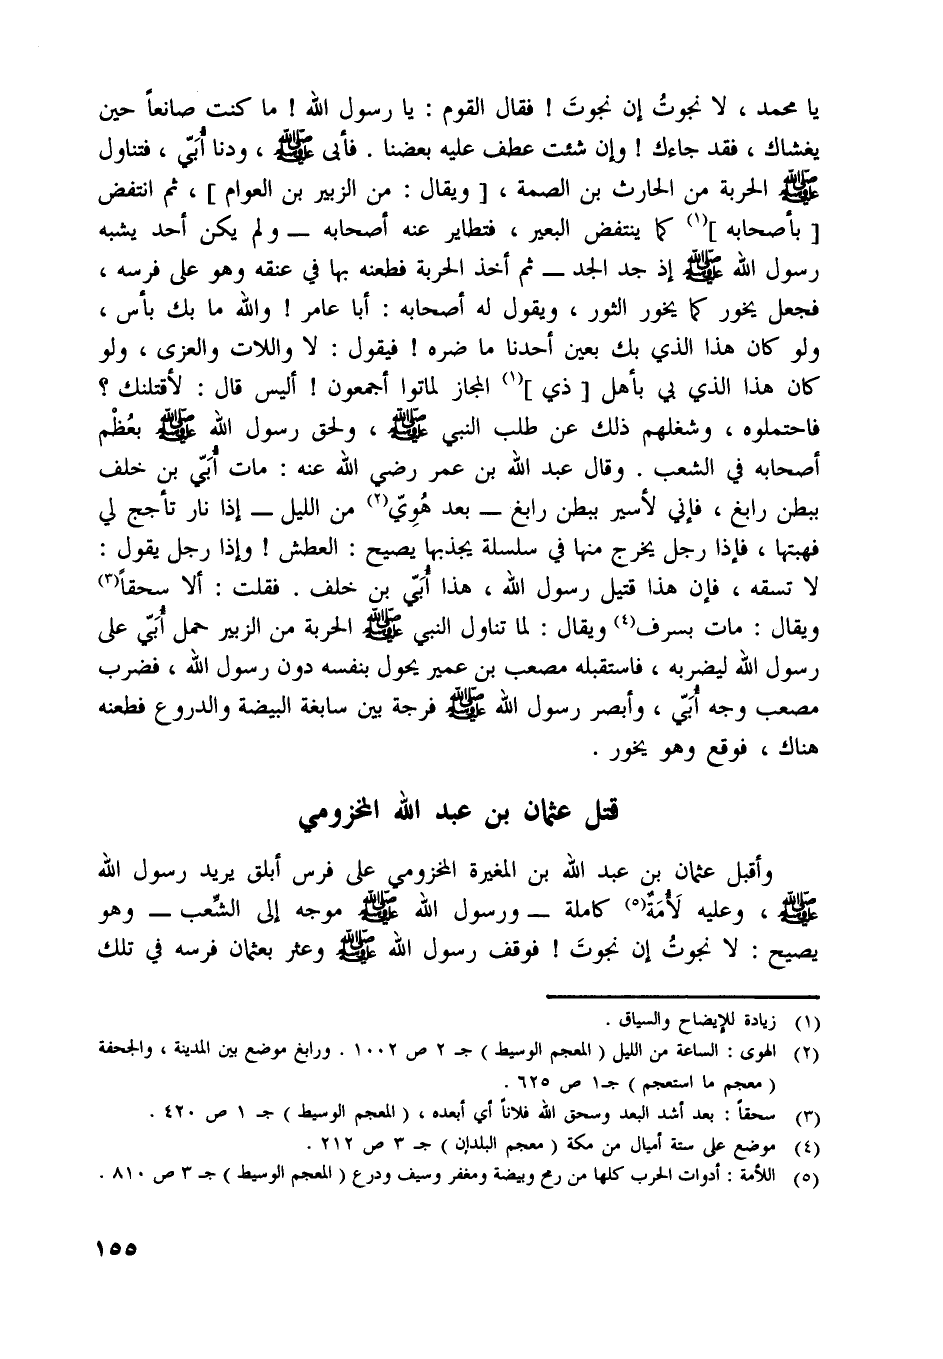 يا محمد ، لا نجوتُ إن نجوتَ ! فقال القوم : يا رسول الله ! ما كنت صانعاً حين
يغشاك ، فقد جاءك ! وإن شئت عطف عليه بعضنا . فأبى ﷺ ، ودنا أُبَيّ ، فتناول
ﷺ الحربة من الحارث بن الصمة ، [ ويقال : من الزبير بن العوام ] ، ثم انتفض
[ بأصحابه ](١) كما ينتفض البعير ، فتطاير عنه أصحابه — ولم يكن أحد يشبه
رسول الله ﷺ إذ جد الجد — ثم أخذ الحربة فطعنه بها في عنقه وهو على فرسه ،
فجعل يخور كما يخور الثور ، ويقول له أصحابه : أبا عامر ! والله ما بك بأس ،
ولو كان هذا الذي بك بعين أحدنا ما ضره ! فيقول : لا واللات والعزى ، ولو
كان هذا الذي بي بأهل [ ذي ](١) المجاز لماتوا أجمعون ! أليس قال : لأقتلنك ؟
فاحتملوه ، وشغلهم ذلك عن طلب النبي ﷺ ، ولحق رسول الله ﷺ بعُظْم
أصحابه في الشعب . وقال عبد الله بن عمر رضي الله عنه : مات أُبَيّ بن خلف
ببطن رابغ ، فإني لأسير ببطن رابغ — بعد هُوِيّ(٢) من الليل — إذا نار تأجج لي
فهبتها ، فإذا رجل يخرج منها في سلسلة يجذبها يصيح : العطش ! وإذا رجل يقول :
لا تسقه ، فإن هذا قتيل رسول الله ، هذا أُبَيّ بن خلف . فقلت : ألا سحقاً(٣)
ويقال : مات بسرف(٤) ويقال : لما تناول النبي ﷺ الحربة من الزبير حمل أُبَيّ على
رسول الله ليضربه ، فاستقبله مصعب بن عمير يحول بنفسه دون رسول الله ، فضرب
مصعب وجه أُبَيّ ، وأبصر رسول الله ﷺ فرجة بين سابغة البيضة والدروع فطعنه
هناك ، فوقع وهو يخور .
قتل عثمان بن عبد الله المخزومي
وأقبل عثمان بن عبد الله بن المغيرة المخزومي على فرس أبلق يريد رسول الله
ﷺ ، وعليه لَأْمَةٌ(٥) كاملة — ورسول الله ﷺ موجه إلى الشِّعب — وهو
يصيح : لا نجوتُ إن نجوتَ ! فوقف رسول الله ﷺ وعثر بعثمان فرسه في تلك
(١) زيادة للإيضاح والسياق .
(٢) الهوى : الساعة من الليل ( المعجم الوسيط ) جـ ٢ ص ١٠٠٢ . ورابغ موضع بين المدينة ، والجحفة
( معجم ما استعجم ) جـ١ ص ٦٢٥ .
(٣) سحقاً : بعد أشد البعد وسحق الله فلاناً أي أبعده ، ( المعجم الوسيط ) جـ ١ ص ٤٢٠ .
(٤) موضع على ستة أميال من مكة ( معجم البلدان ) جـ ٣ ص ٢١٢ .
(٥) اللأمة : أدوات الحرب كلها من رمح وبيضة ومغفر وسيف ودرع ( المعجم الوسيط ) جـ ٣ ص ٨١٠ .
١٥٥